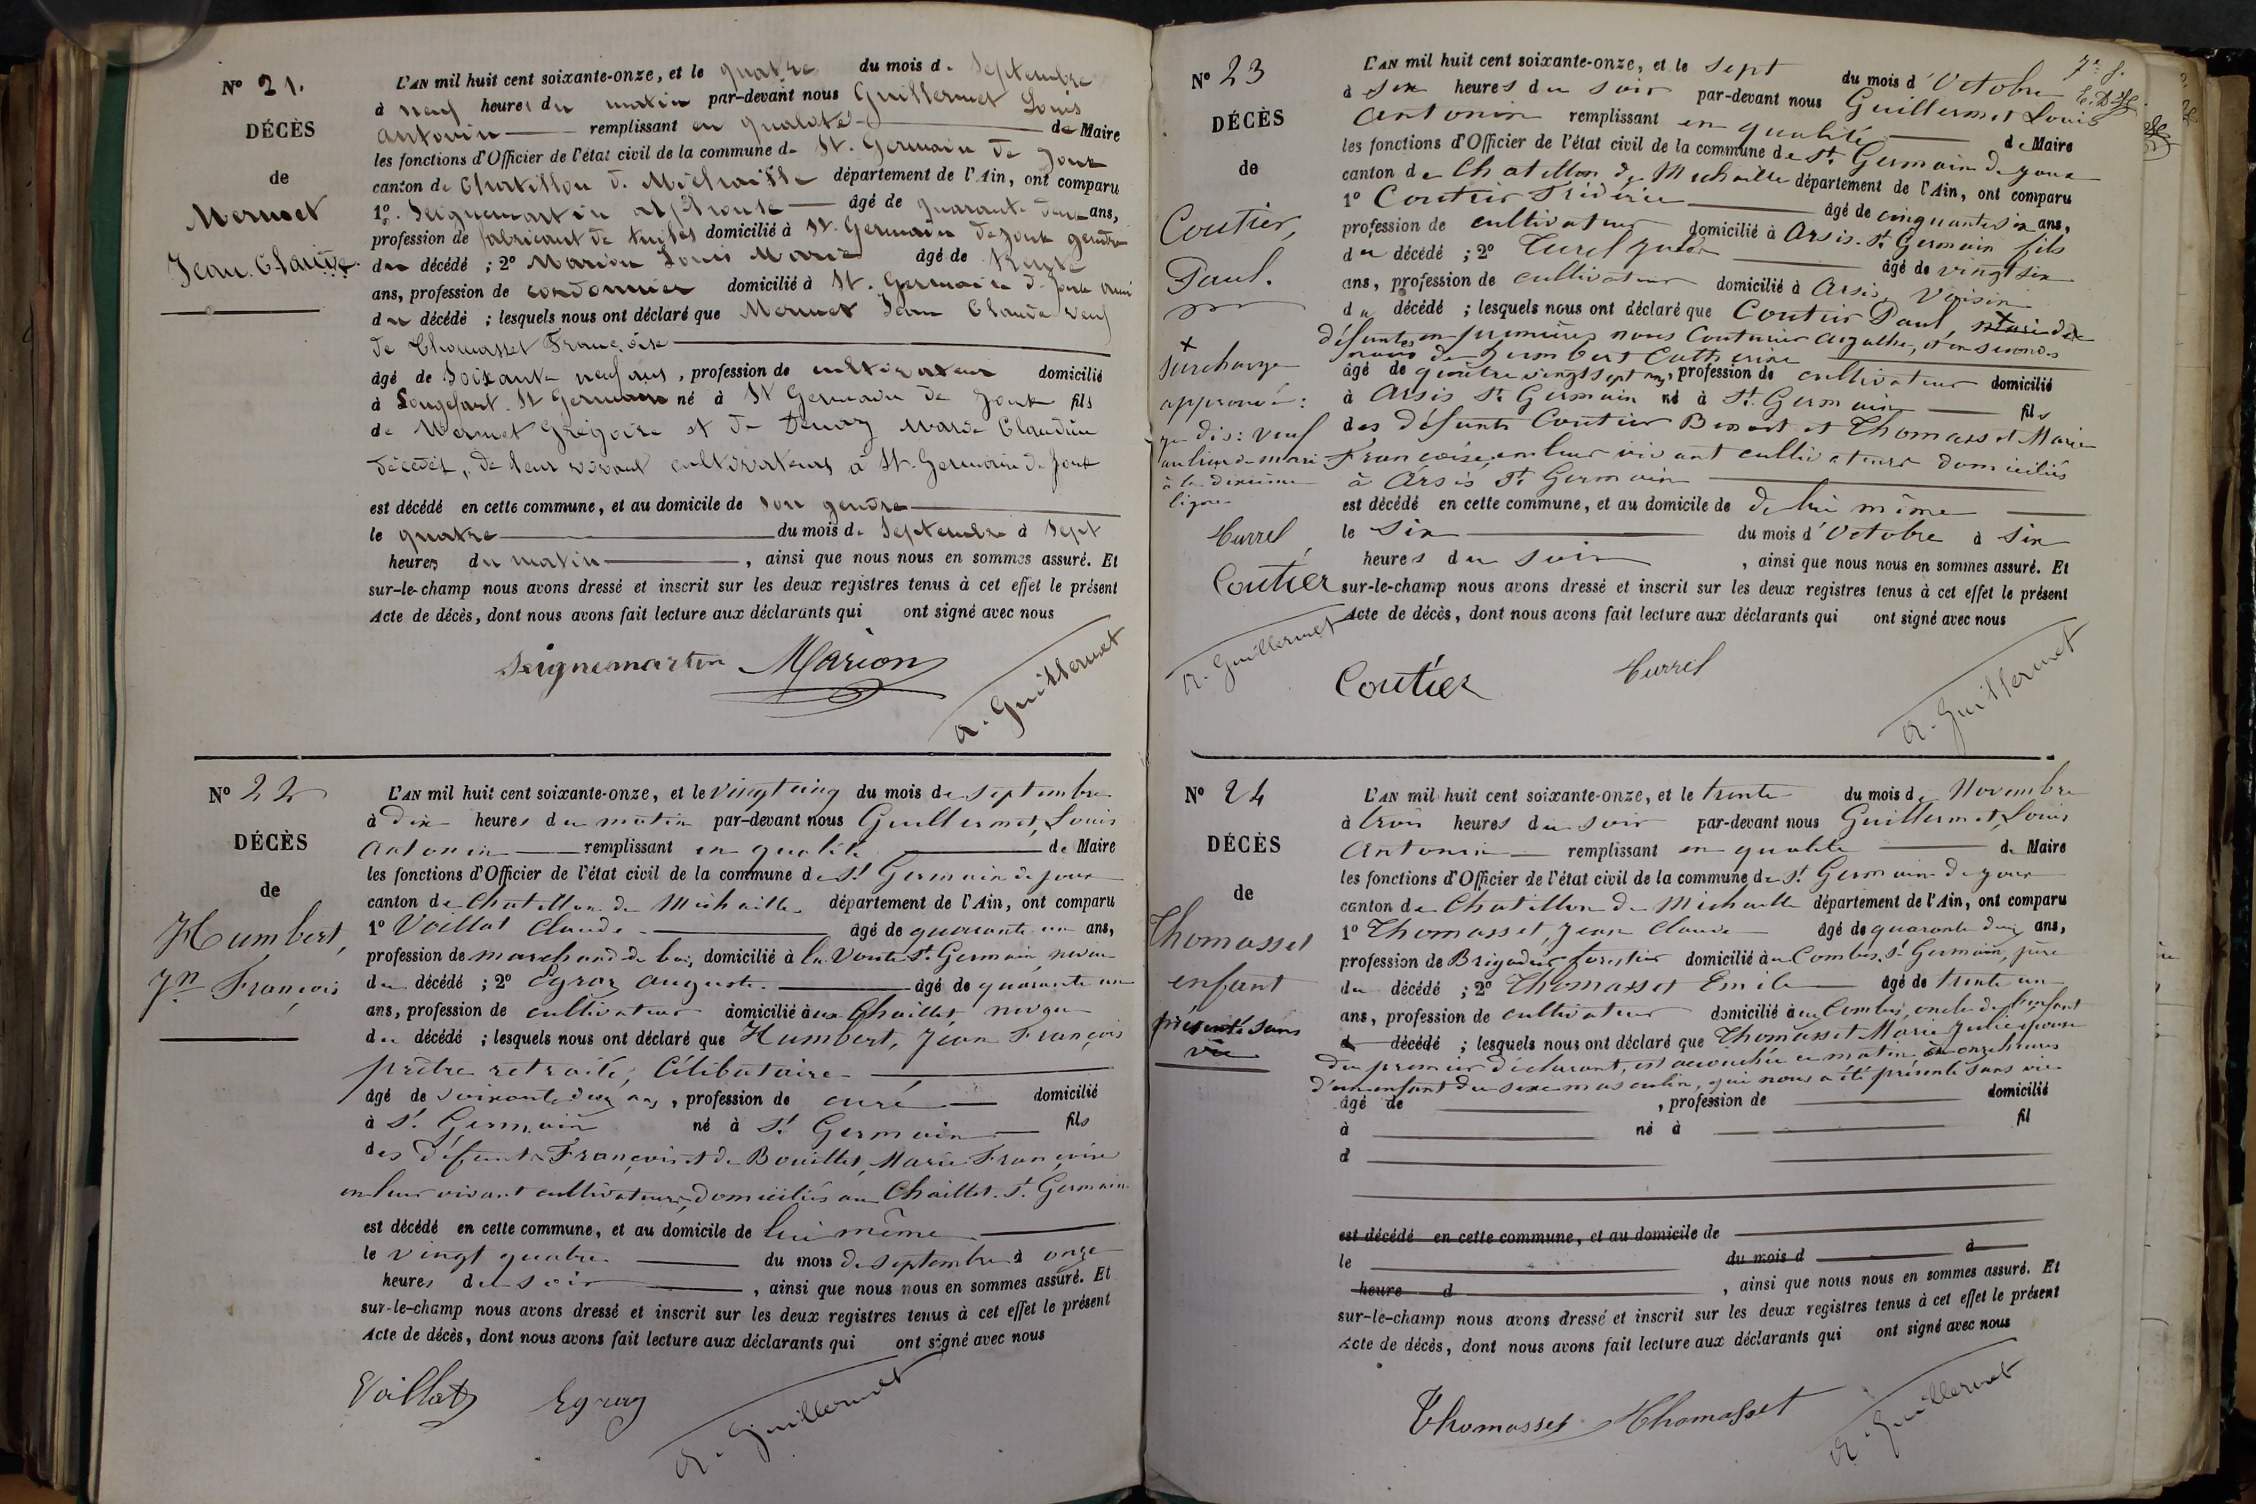 Nº 21.
DÉCÈS
de
Mermet
Jean Claude
L'AN mil huit cent soixante-onze, et le quatre du mois de Septembre
à neuf heures du matin par-devant nous Guillermet Louis
Antonin remplissant en qualité de Maire
les fonctions d'Officier de l'état civil de la commune de St. Germain de Joux
canton de Chatillon de Michaille département de l'Ain, ont comparu
1º Seignemartin Alphonse âgé de quarante deux ans,
profession de fabricant de tuiles domicilié à St. Germain de Joux gendre
du décédé ; 2º Marion Louis Marie âgé de trente
ans, profession de cordonnier domicilié à St. Germain de Joux ami
du décédé ; lesquels nous ont déclaré que Mermet Jean Claude veuf
de Thomasset Françoise
âgé de soixante neuf ans, profession de cultivateur domicilié
à Longefant. St Germain né à St Germain de Joux fils
de Mermet Grégoire et de Marie Claudine
décédés, de leur vivant cultivateurs à St. Germain de Joux
est décédé en cette commune, et au domicile de son gendre
le quatre du mois de Septembre à Sept
heures du matin, ainsi que nous nous en sommes assuré. Et
sur-le-champ nous avons dressé et inscrit sur les deux registres tenus à cet effet le présent
Acte de décès, dont nous avons fait lecture aux déclarants qui ont signé avec nous
Seignemartin Marion A. Guillermet
Nº 22
DÉCÈS
de
Humbert,
Jn François
L'AN mil huit cent soixante-onze, et le vingt cinq du mois de septembre
à dix heures du matin par-devant nous Guillermet, Louis
Antonin remplissant en qualité de Maire
les fonctions d'Officier de l'état civil de la commune de St Germain de Joux
canton de Chatillon de Michaille département de l'Ain, ont comparu
1º Voillat Claude âgé de quarante un ans,
profession de marchand de bois domicilié à la Voute St. Germain, neveu
du décédé ; 2º Egraz Auguste âgé de quarante un
ans, profession de cultivateur domicilié aux Chaillet neveu
du décédé ; lesquels nous ont déclaré que Humbert, Jean François
prêtre retraité, Célibataire
âgé de soixante deux ans, profession de curé domicilié
à St. Germain né à St Germain fils
des défunts François et de Bouillet, Marie Françoise
en leur vivant cultivateurs, domiciliés au Chaillet. St. Germain
est décédé en cette commune, et au domicile de lui même
le vingt quatre du mois de septembre à onze
heures du soir, ainsi que nous nous en sommes assuré. Et
sur-le-champ nous avons dressé et inscrit sur les deux registres tenus à cet effet le présent
Acte de décès, dont nous avons fait lecture aux déclarants qui ont signé avec nous
Voillat Egraz A. Guillermet
Nº 23
DÉCÈS
de
Coutier,
Paul.
x
Surcharge
approuvée :
je dis : veuf
au lieu de mari
à la dixième
ligne
Turrel
Coutier
A. Guillermet
L'AN mil huit cent soixante-onze, et le sept du mois d'Octobre
à six heures du soir par-devant nous Guillermet Louis
Antonin remplissant en qualité de Maire
les fonctions d'Officier de l'état civil de la commune de St. Germain de Joux
canton de Chatillon de Michaille département de l'Ain, ont comparu
1º Coutier Frédéric âgé de cinquante six ans,
profession de cultivateur domicilié à Arsis. St. Germain fils
du décédé ; 2º Turel âgé de vingt six
ans, profession de cultivateur domicilié à Arsis, Voisin
du décédé ; lesquels nous ont déclaré que Coutier Paul,
défunte en premières noces Couturier Agathe, et en secondes
noces de Humbert Catherine
âgé de quatre vingt sept ans, profession de cultivateur domicilié
à Arsis St. Germain né à St. Germain fils
des défunts Coutier Benoit et Thomasset Marie
Françoise, en leur vivant cultivateurs domiciliés
à Arsis St. Germain
est décédé en cette commune, et au domicile de de lui même
le six du mois d'Octobre à six
heures du soir, ainsi que nous nous en sommes assuré. Et
sur-le-champ nous avons dressé et inscrit sur les deux registres tenus à cet effet le présent
Acte de décès, dont nous avons fait lecture aux déclarants qui ont signé avec nous
Coutier Turrel A. Guillermet
Nº 24
DÉCÈS
de
Thomasset
enfant
présenté sans
vie
L'AN mil huit cent soixante-onze, et le trente du mois de Novembre
à trois heures du soir par-devant nous Guillermet, Louis
Antonin remplissant en qualité de Maire
les fonctions d'Officier de l'état civil de la commune de St Germain de Joux
canton de Chatillon de Michaille département de l'Ain, ont comparu
1º Thomasset, Jean Claude âgé de quarante deux ans,
profession de Brigadier forestier domicilié au Combes, St Germain, père
du décédé ; 2º Thomasset Emile âgé de trente un
ans, profession de cultivateur domicilié au Combes, oncle de l'enfant
d décédé ; lesquels nous ont déclaré que Thomasset Marie Julie épouse
du premier déclarant, est accouchée ce matin, à onze heures
d'un enfant du sexe masculin, qui nous a été présenté sans vie
âgé de , profession de domicilié
à né à fil
d
est décédé en cette commune, et au domicile de
le du mois d à
heure d , ainsi que nous nous en sommes assuré. Et
sur-le-champ nous avons dressé et inscrit sur les deux registres tenus à cet effet le présent
Acte de décès, dont nous avons fait lecture aux déclarants qui ont signé avec nous
Thomasset Thomasset A. Guillermet